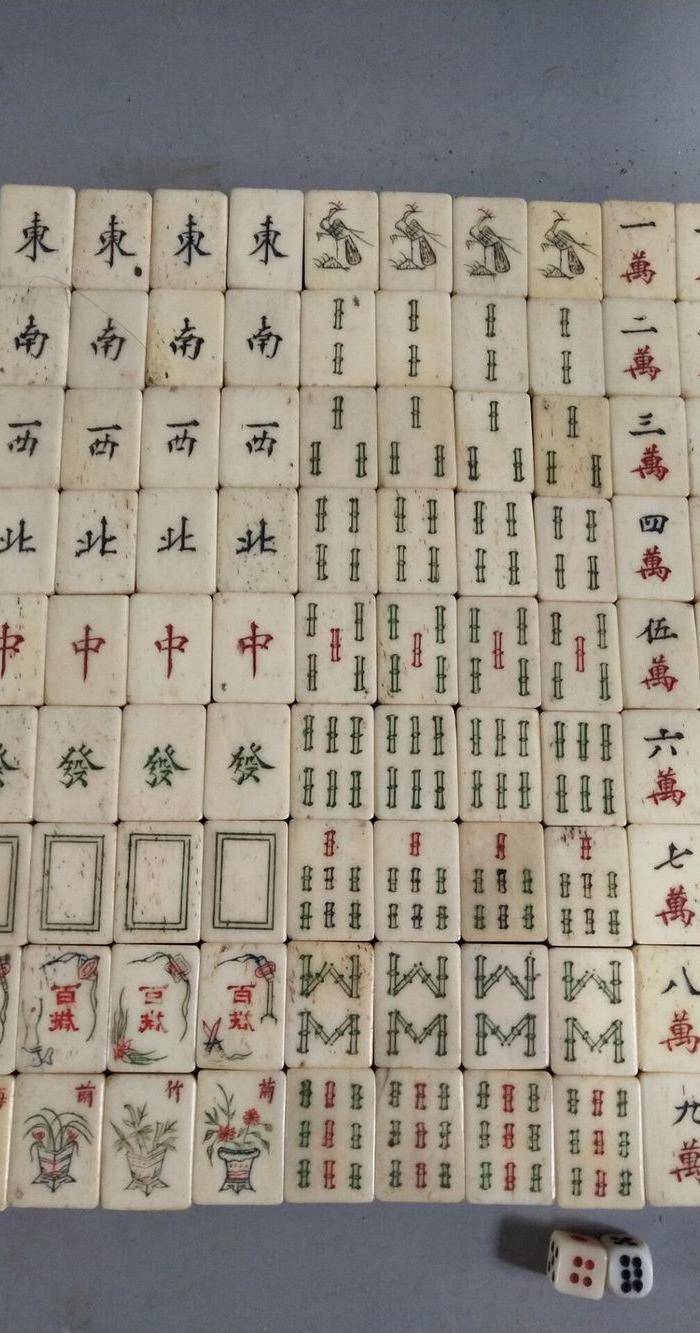 東 東 東 東 一萬
南 南 南 南 二萬
西 西 西 西 三萬
北 北 北 北 四萬
中 中 中 中 伍萬
發 發 發 六萬
七萬
百搭 百搭 百搭 八萬
竹 菊 九萬